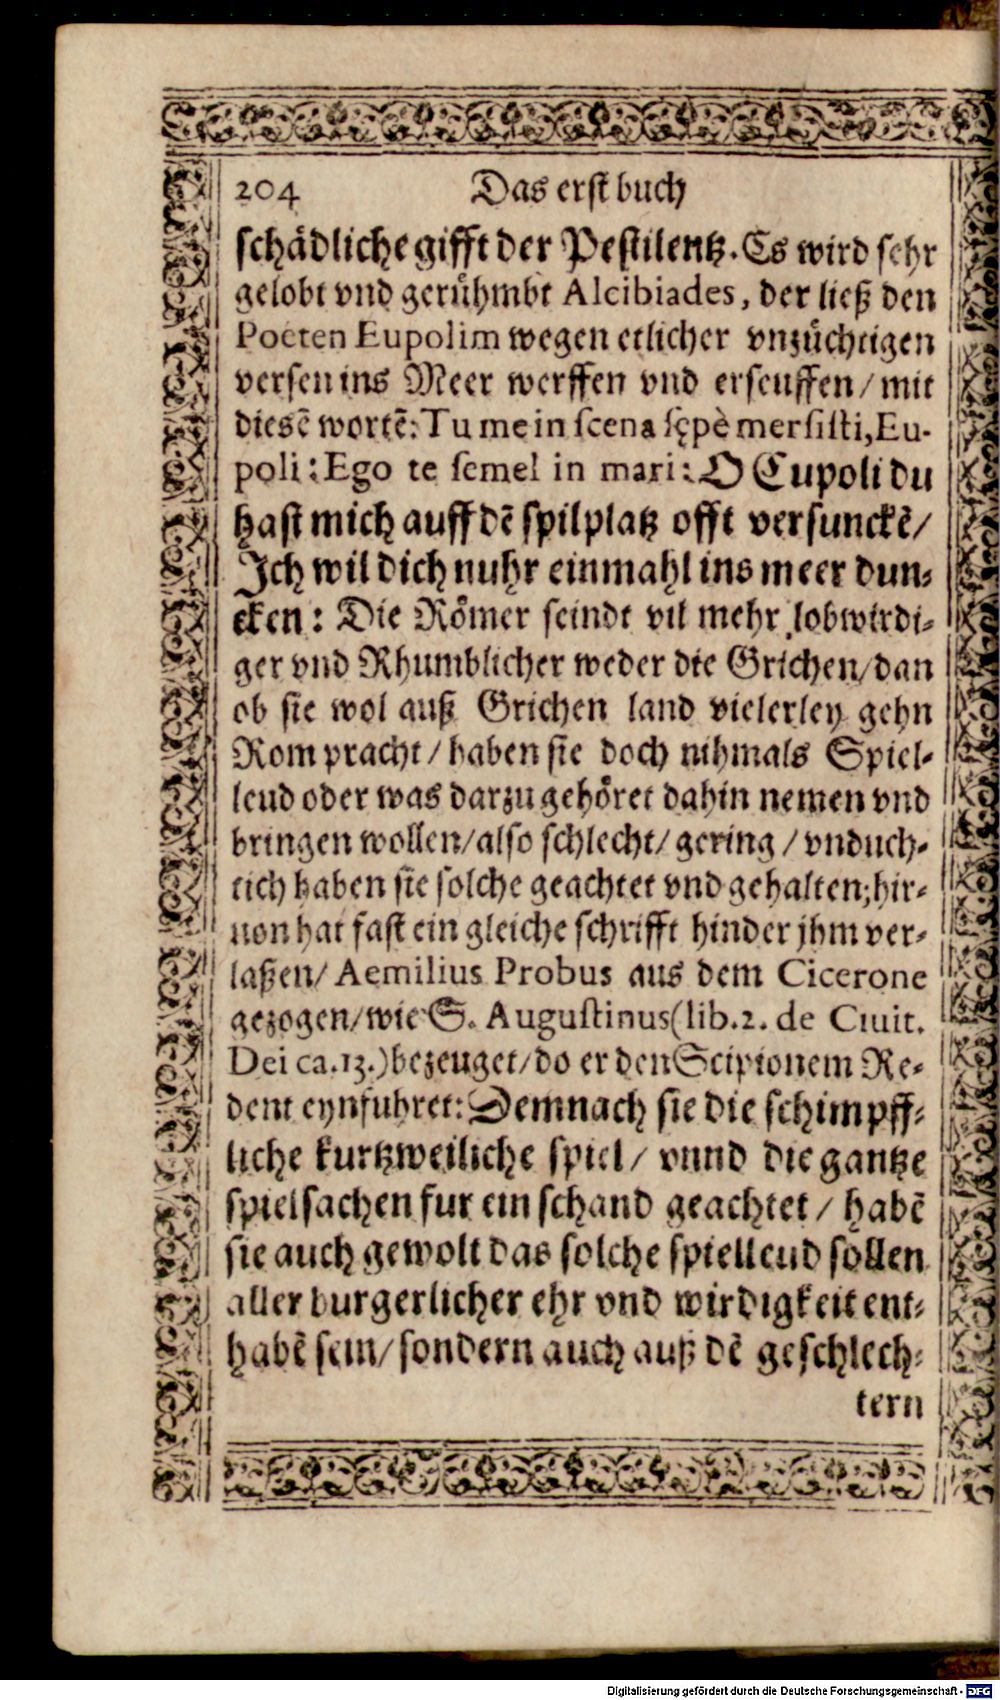 204 Das erst buch
schädliche gifft der Pestilentz. Es wird sehr
gelobt vnd gerühmbt Alcibiades, der ließ den
Poeten Eupolim wegen etlicher vnzüchtigen
versen ins Meer werffen vnd erseuffen/ mit
diesē wortē: Tu me in scena sępè mersisti, Eu-
poli: Ego te semel in mari: O Eupoli du
hast mich auff dē spilplatz offt versunckē/
Ich wil dich nuhr einmahl ins meer dun-
cken: Die Römer seindt vil mehr lobwirdi-
ger vnd Rhumblicher weder die Grichen/ dan
ob sie wol auß Grichen land vielerley gehn
Rom pracht/ haben sie doch nihmals Spiel-
leud oder was darzu gehöret dahin nemen vnd
bringen wollen/ also schlecht/ gering / vnduch-
tich haben sie solche geachtet vnd gehalten; hir-
uon hat fast ein gleiche schrifft hinder jhm ver-
laßen/ Aemilius Probus aus dem Cicerone
gezogen/ wie S. Augustinus (lib. 2. de Ciuit.
Dei ca. 13.) bezeuget/ do er den Scipionem Re-
dent eynfuhret: Demnach sie die schimpff-
liche kurtzweiliche spiel/ vnnd die gantze
spielsachen fur ein schand geachtet / habē
sie auch gewolt das solche spielleud sollen
aller burgerlicher ehr vnd wirdigkeit ent-
habē sein/ sondern auch auß dē geschlech-
tern
Digitalisierung gefördert durch die Deutsche Forschungsgemeinschaft - DFG